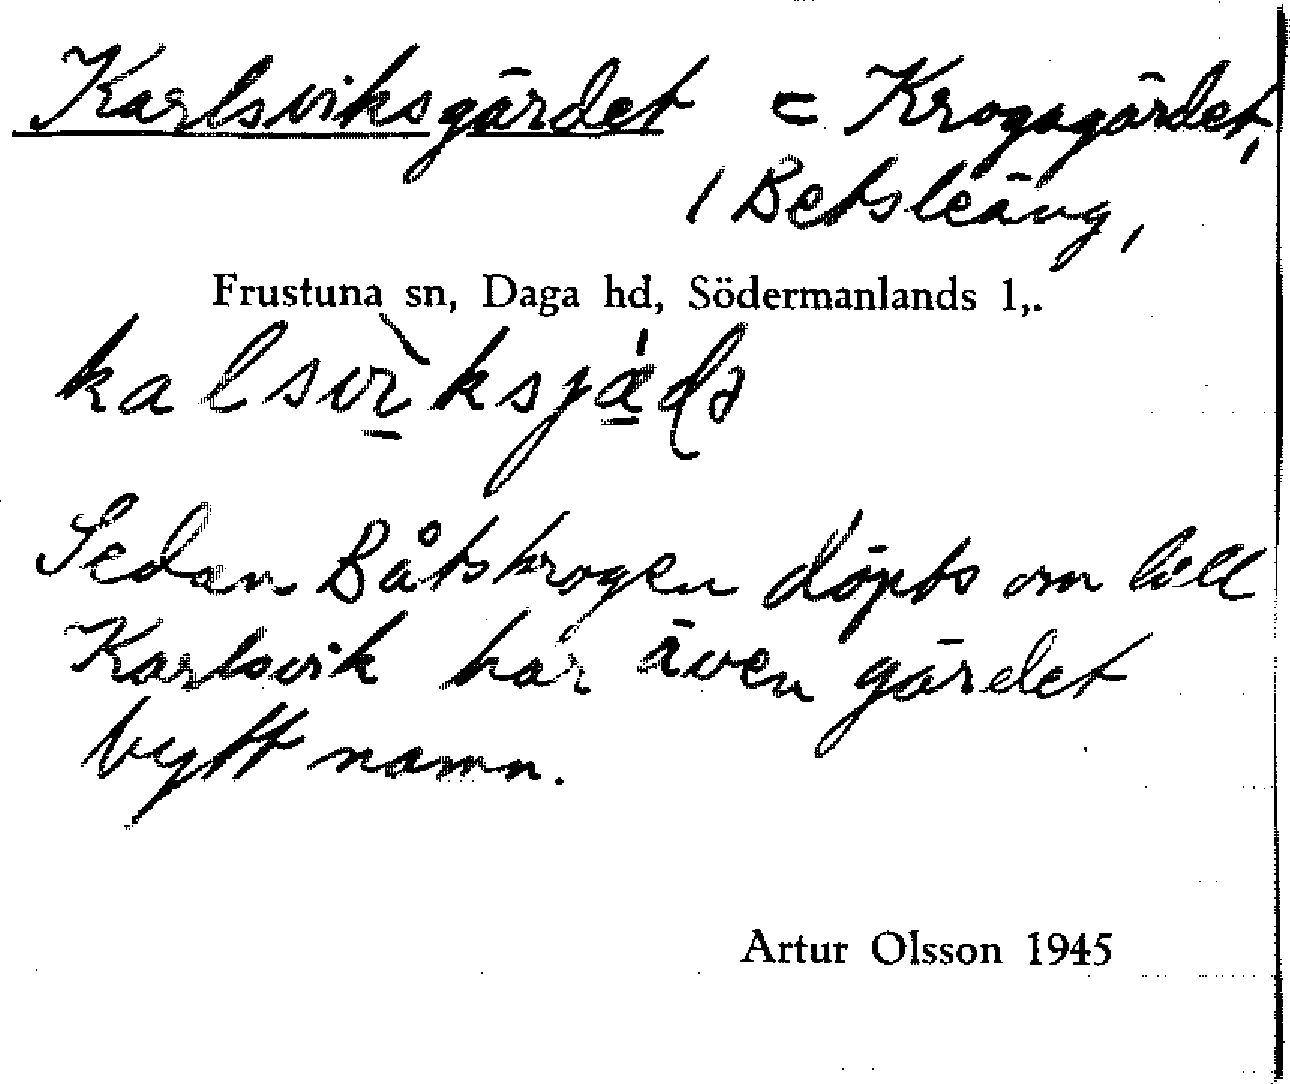 Karlsviksgärdet = Krogagärdet,
/ Betsleäng,
Frustuna sn, Daga hd, Södermanlands l,.
kalsvìksjǽdə
Sedan Båtskrogen döpts om till
Karlsvik har även gärdet
bytt namn.
Artur Olsson 1945